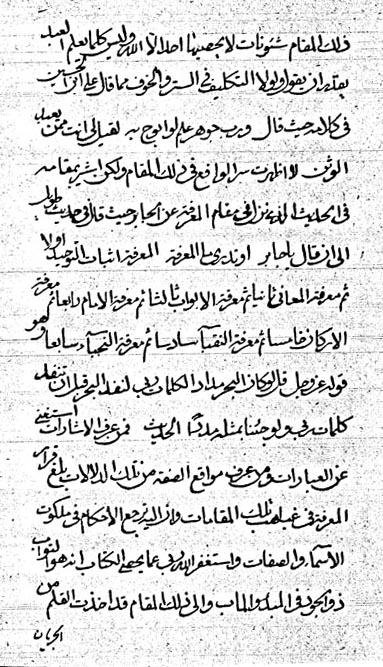 فذلك المقام شئونات لا يحصيها احد الا الله وليس كلما يعلم العبد
يقدر ان يقول ولولا التكليف في الستر والخوف مما قال علي بن الحسين
في كلامه حيث قال ورب جوهر علم لو ابوح به لقيل لي انت ممن يعبد
الوثن لاظهرت سر الواقع في ذلك المقام ولكن اشير بمقامه
في الحديث الذي في مقام المعرفة عن الجابر حيث قال في حديث طويل
الى ان قال يا جابر او تدري ما المعرفة المعرفة اثبات التوحيد اولا
ثم معرفة المعاني ثانيا ثم معرفة الابواب ثالثا ثم معرفة الامام رابعا ثم معرفة
الاركان خامسا ثم معرفة النقباء سادسا ثم معرفة النجباء سابعا وهو
قوله عز وجل قل لو كان البحر مدادا لكلمات ربي لنفد البحر قبل ان تنفد
كلمات ربي ولو جئنا بمثله مددا الحديث فمن عرف الاشارات استغنى
عن العبارات ومن عرف مواقع الصفة من تلك الدلالات بلغ قرار
المعرفة في غياهب تلك المقامات وان اليه يرجع الاحكام في ملكوت
الاسماء والصفات واستغفر الله ربي عما يحصي الكتاب انه هو التواب
ذو الجود في المبدء والماب والى ذلك المقام قد اخذت القلم من
الجريان